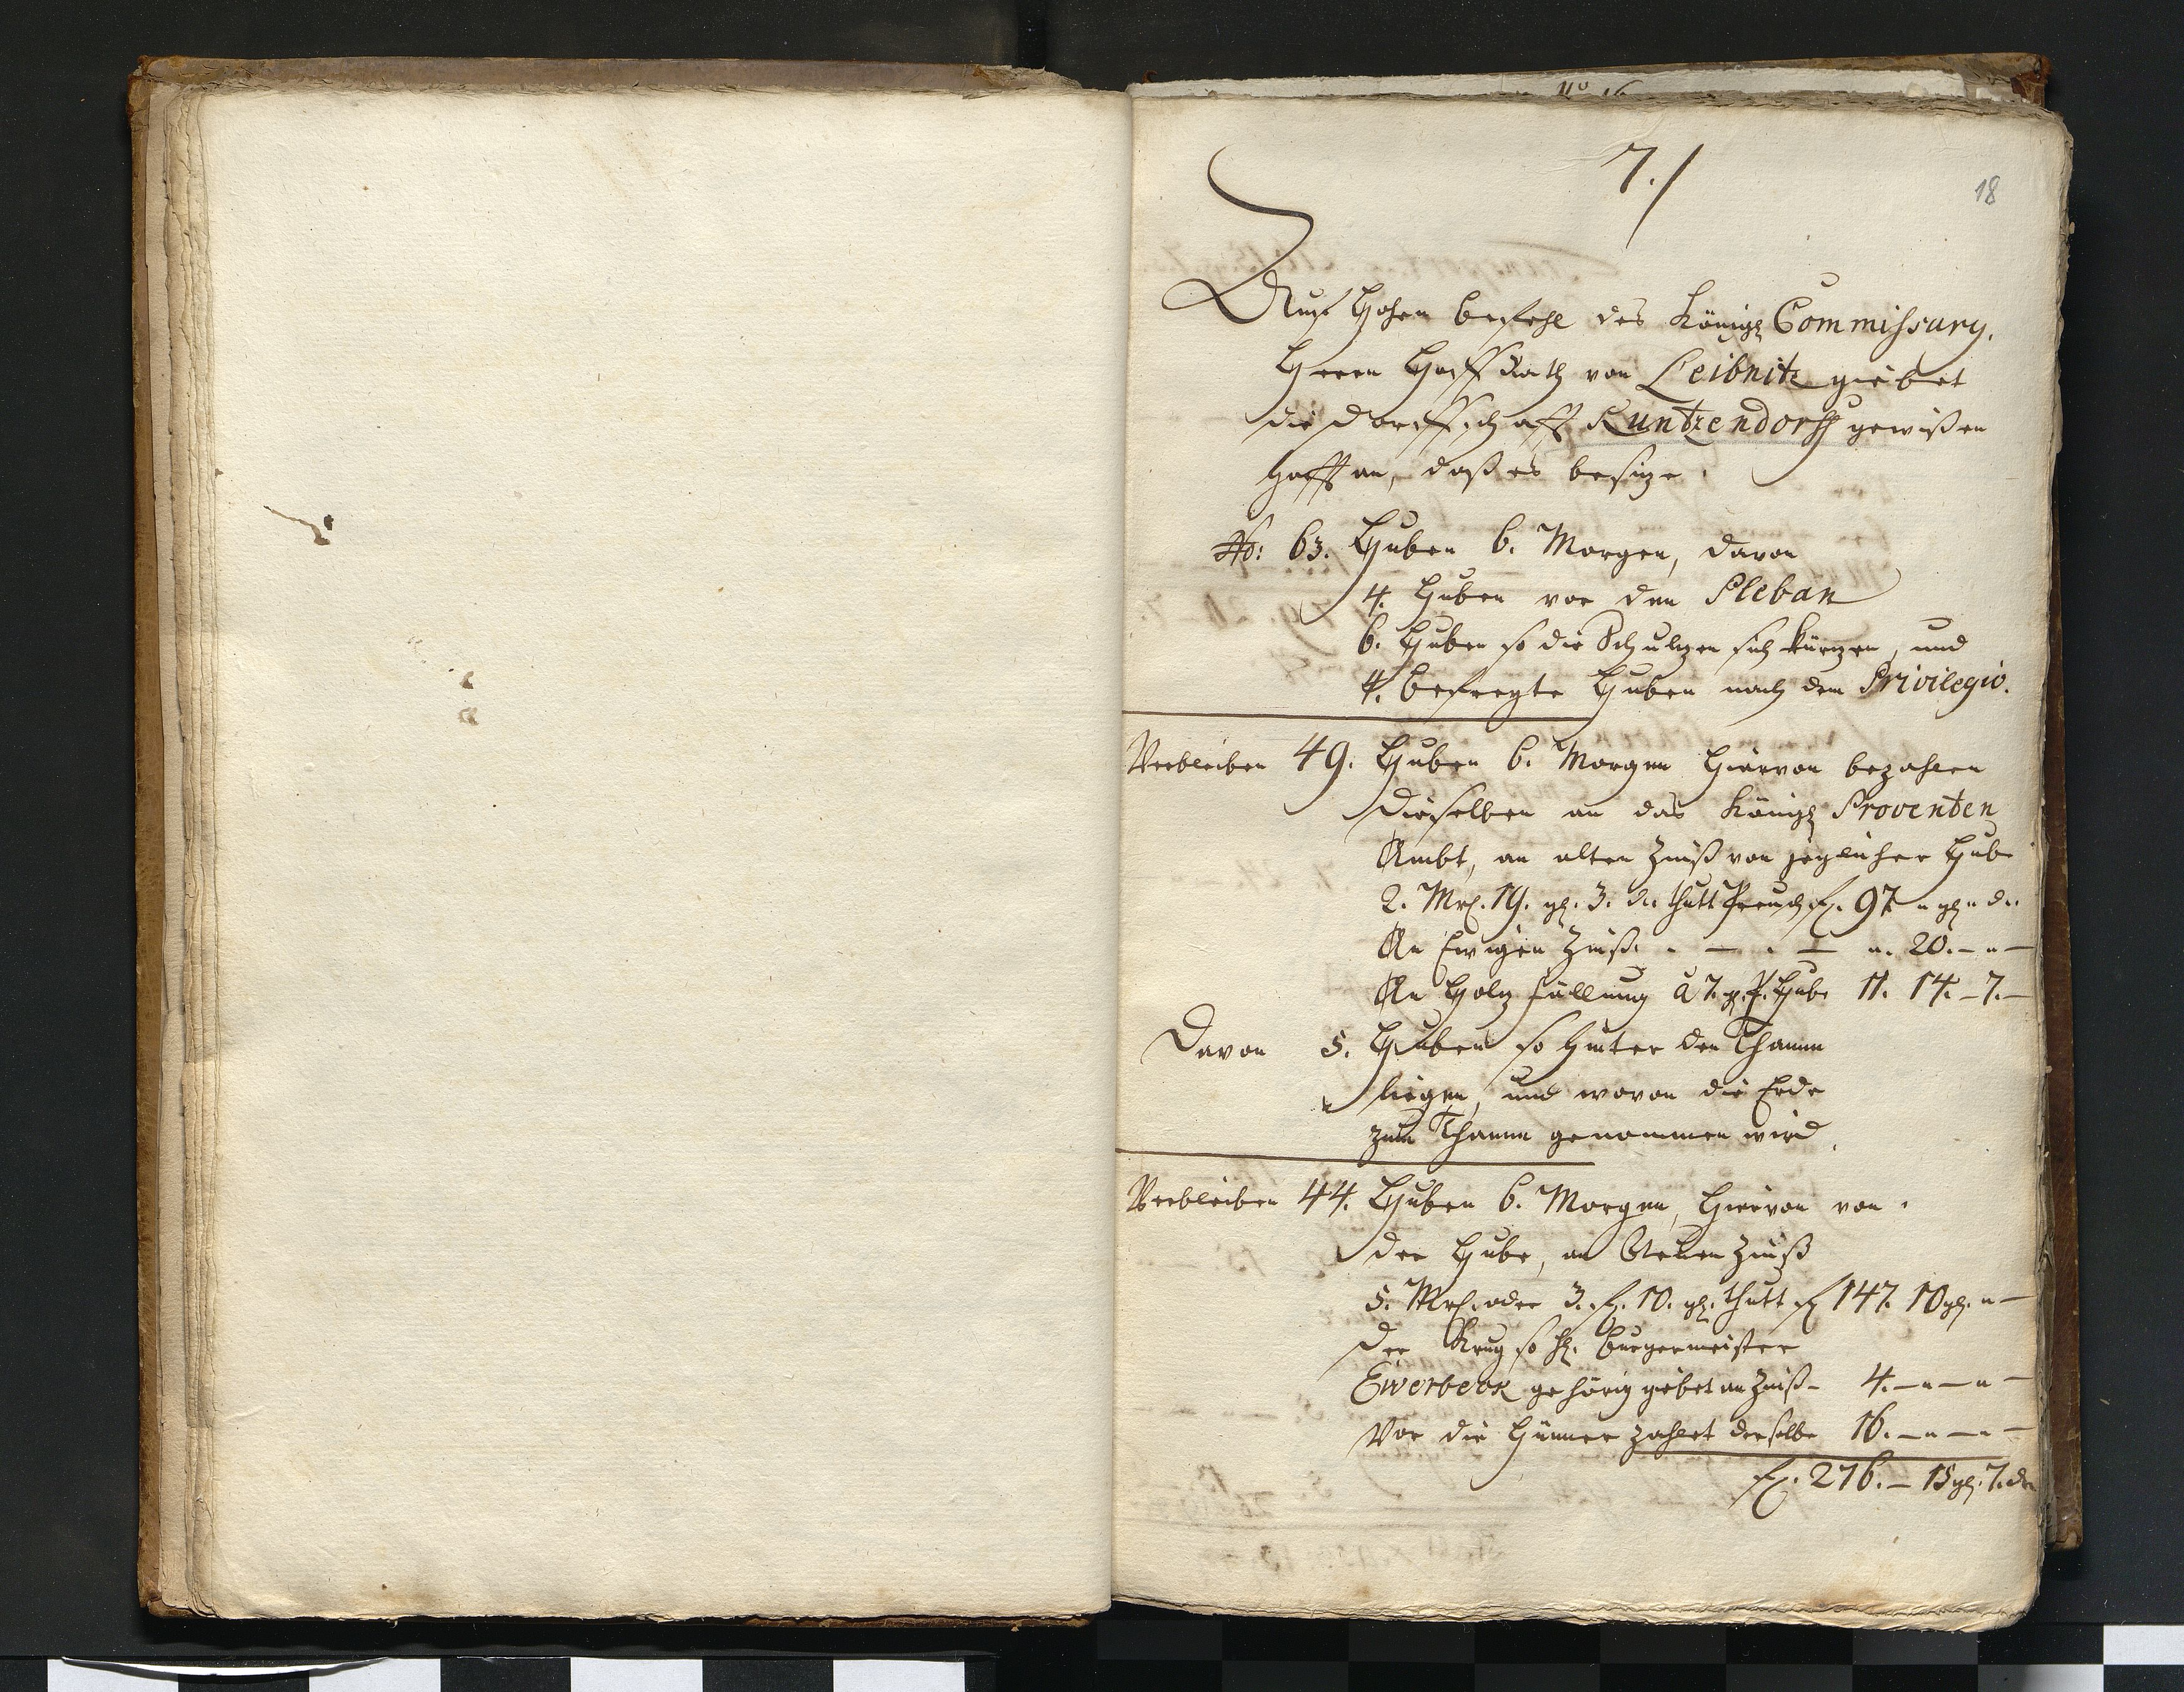 7./
18
Auf hohen Befehl des Königl Commissary,
Herrn Hoff Rath von Leibnitz giebet
die Dorffschafft Kuntzendorff gewißen
hafft an, daß es besitze.
No: 63. Huben 6. Morgen, davon
4. Huben vor den Pleban
6. Huben so die Schultzen sich kürtzen, und
4. befreyte Huben nach dem Privilegio.
Verbleiben 49. Huben 6. Morgen hiervon bezahlen
dieselben an das Königl Proventen
Ambt, an alten Zinß von jeglicher Hube
2. Mrk. 19. gl. 3. d. thutt fl. 97 " gl " d "
An Ewigen Zinß. " — " — ". 20. — " —
An Holtz fällung à 7. gl. p. Hube 11. 14. – 7. —
Davon 5. Huben so hinter den Thamm
liegen, und wovon die Erde
zum Thamm genommen wird.
Verbleiben 44. Huben 6. Morgen, hiervon von
der Hube, an Neuen Zinß
5. Mrk. oder 3. fl. 10. gl. thutt fl 147. 10 gl. " —
Der Krug so H. Burgermeister
Ewerbeck gehörig giebet an Zinß – 4. — " — " —
Vor die Hünner zahlet derselbe 16. — " — " —
fl. 276. — 15 gl. 7. d